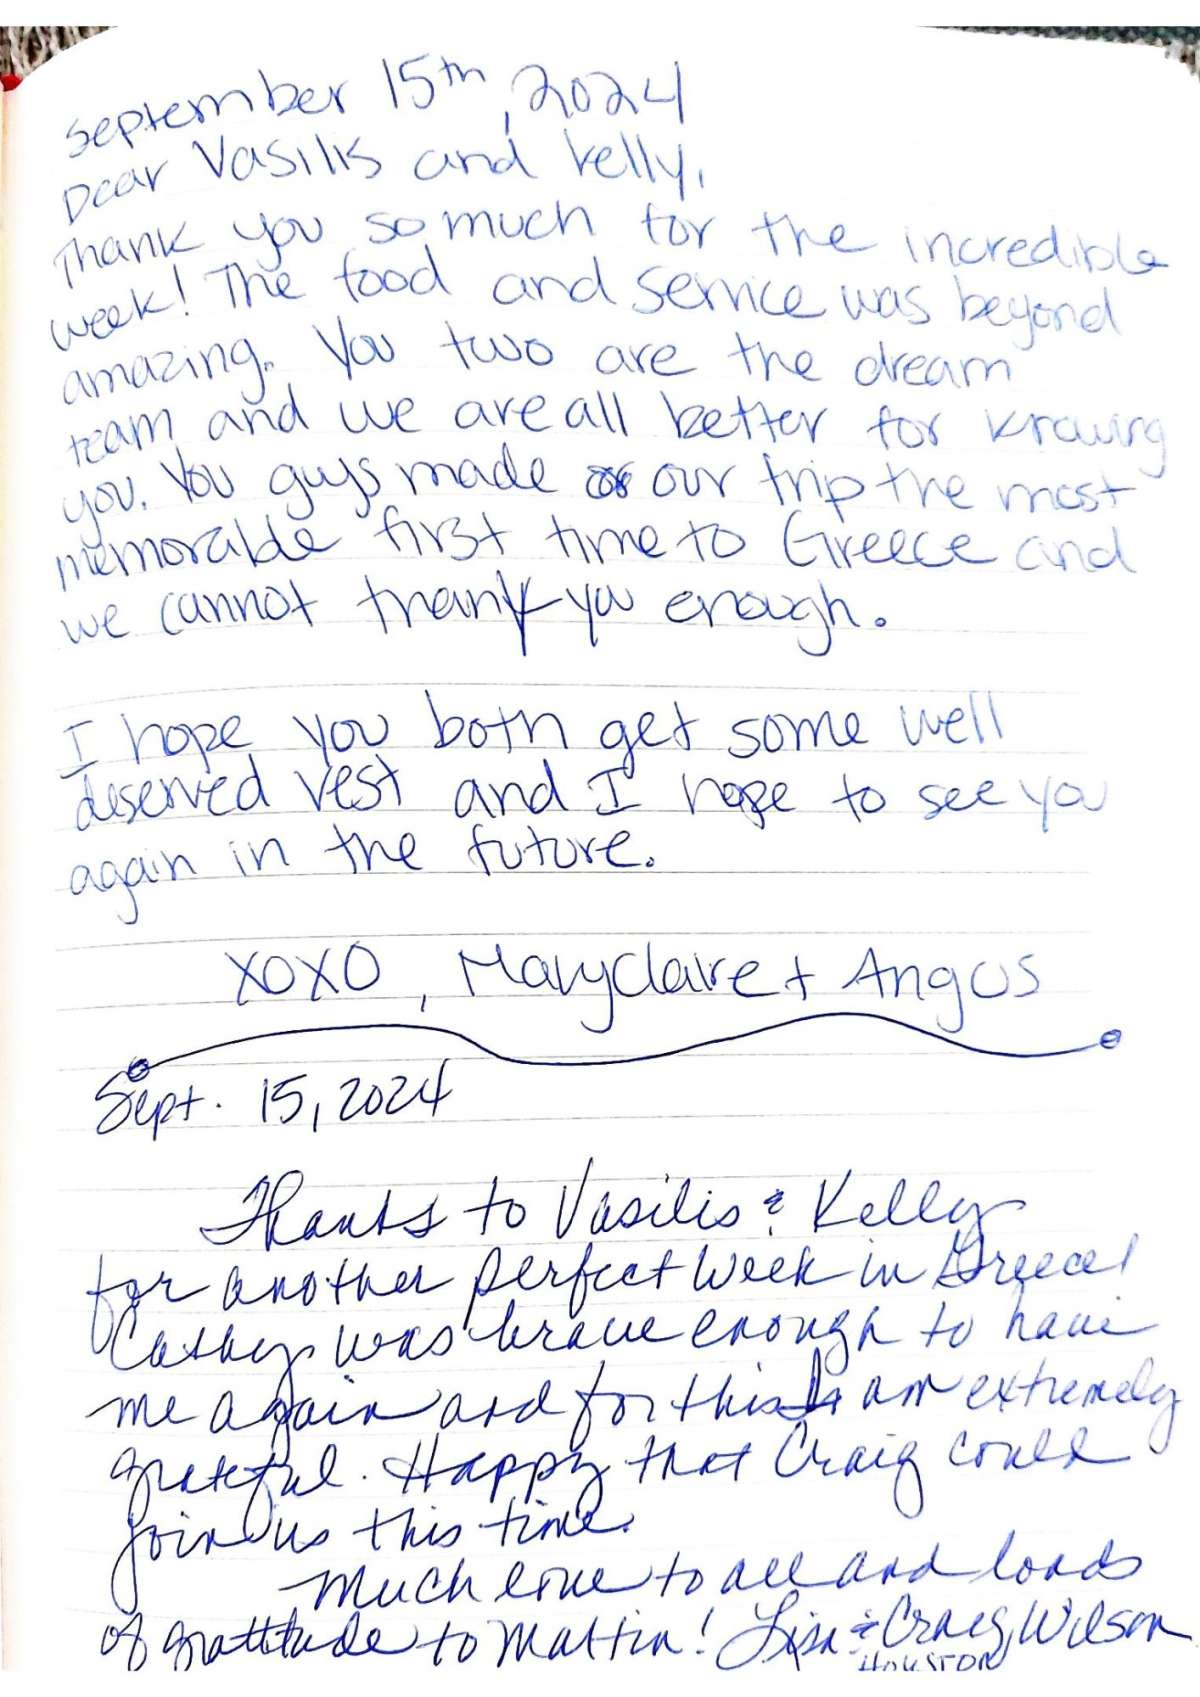 September 15th, 2024
Dear Vasilis and Kelly,
Thank you so much for the incredible
week! The food and service was beyond
amazing. You two are the dream
team and we are all better for knowing
you. You guys made our trip the most
memorable first time to Greece and
we cannot thank you enough.
I hope you both get some well
deserved rest and I hope to see you
again in the future.
XOXO, Maryclaire + Angus
Sept. 15, 2024
Thanks to Vasilis & Kelly
for another perfect week in Greece!
Cathy was brave enough to have
me again and for this I am extremely
grateful. Happy that Craig could
join us this time.
Much love to all and loads
of gratitude to Martin! Lisa & Craig Wilson
HOUSTON